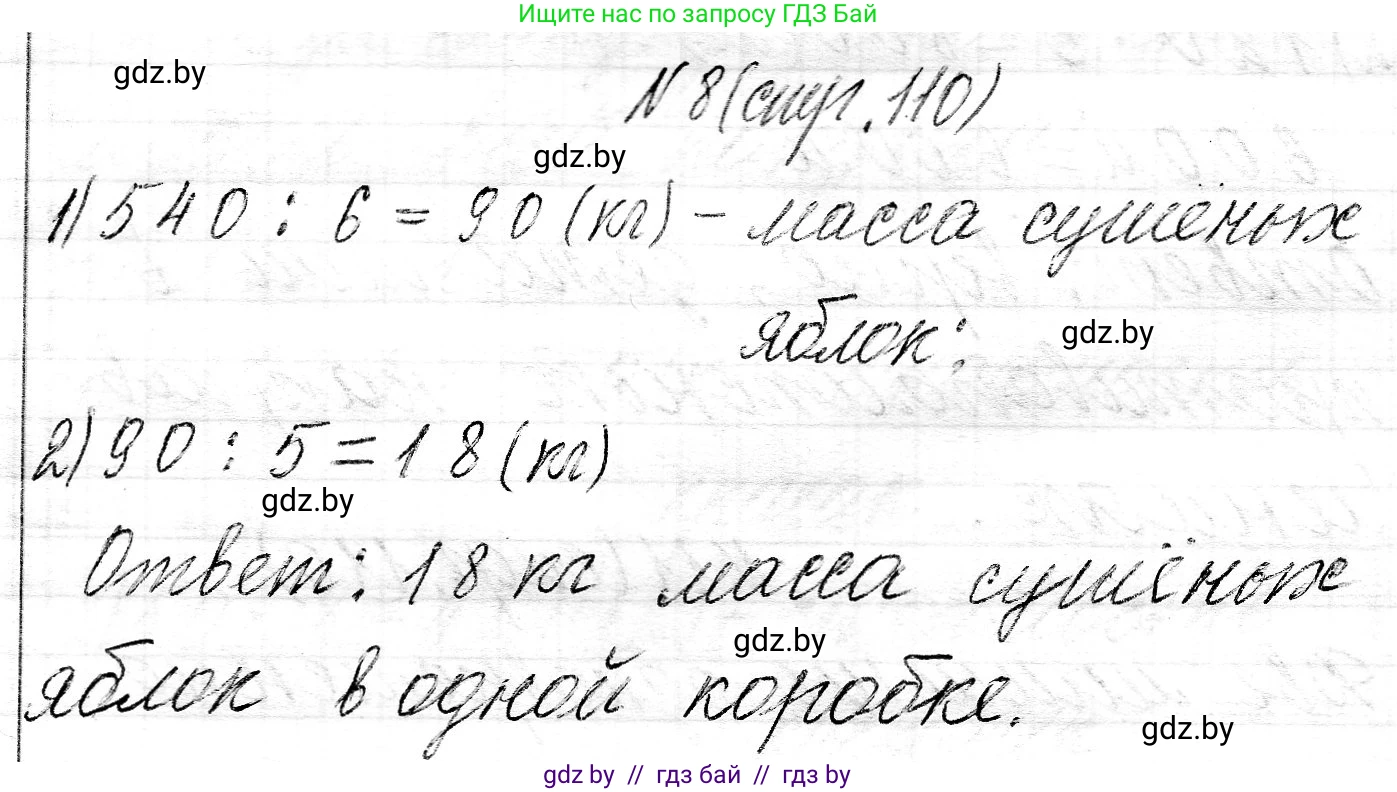 Ищите нас по запросу ГДЗ Бай
gdz.by
N 8 (стр. 110)
gdz.by
1) 540 : 6 = 90 (кг) - масса сушёных
яблок;
gdz.by
2) 90 : 5 = 18 (кг)
gdz.by
Ответ: 18 кг масса сушёных
gdz.by
яблок в одной коробке.
gdz.by
gdz by // гдз бай // гдз by